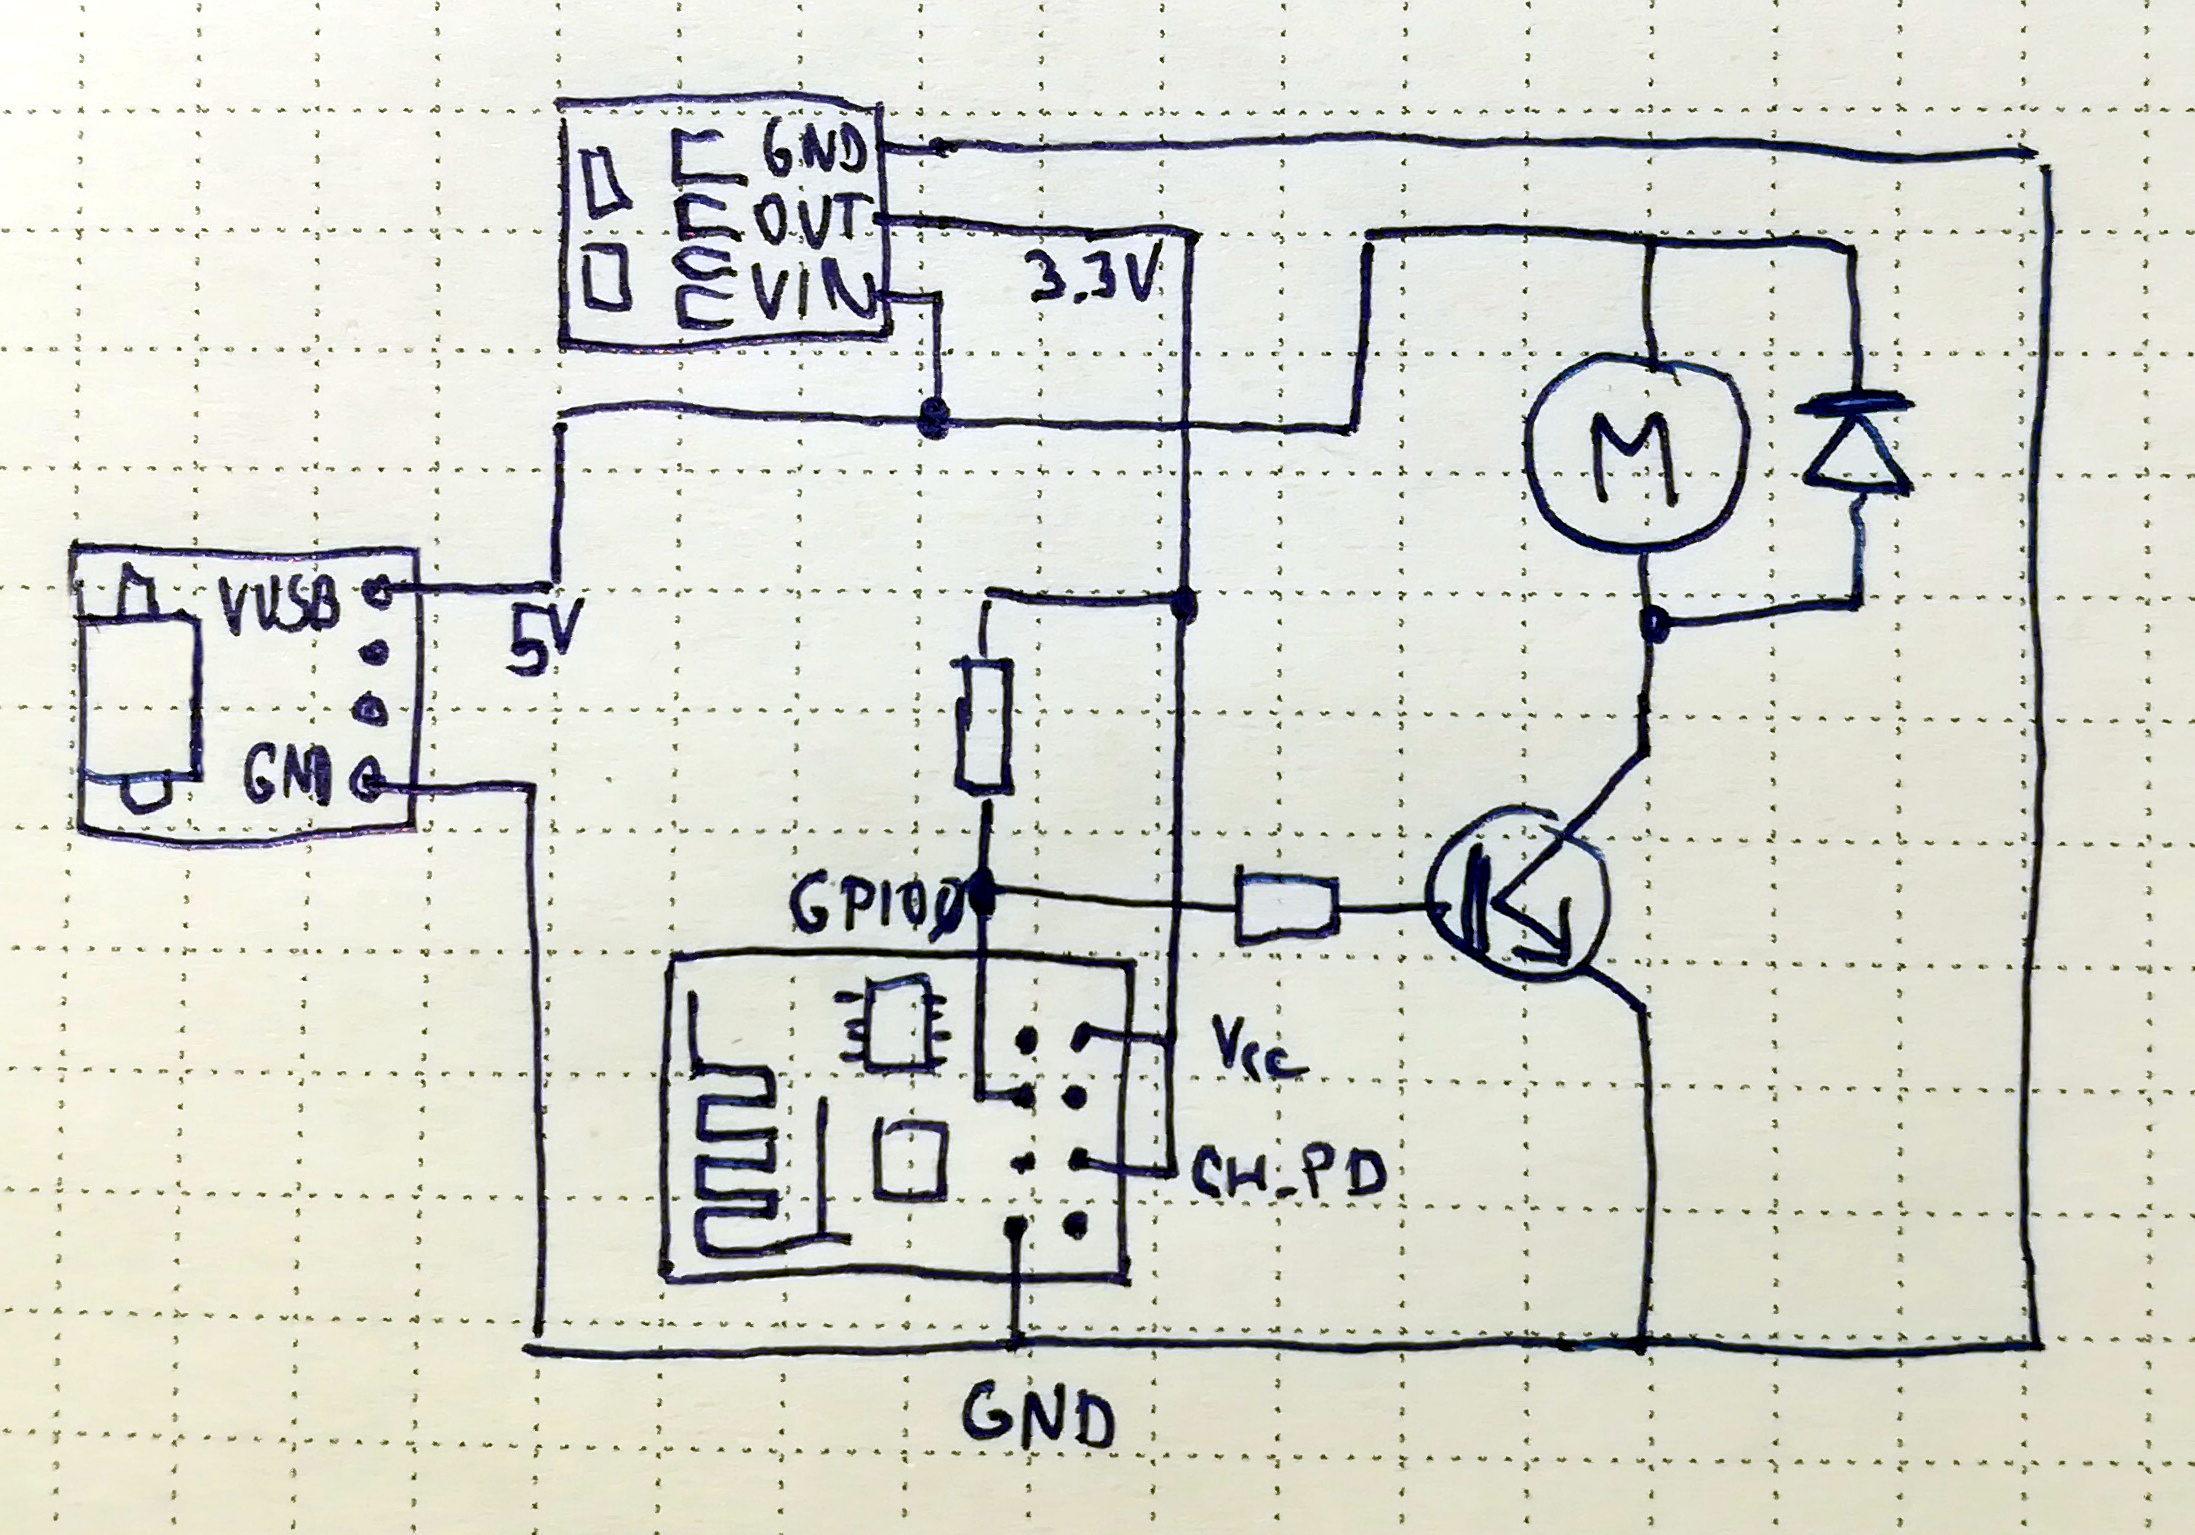 GND
OUT
VIN
3.3V
M
VUSB
5V
GND
GPIO0
Vcc
CH_PD
GND